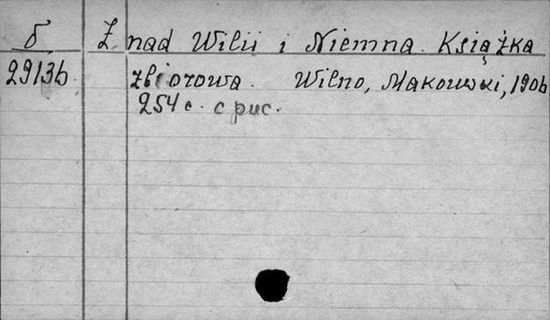 Б Z nad Wilii i Niemna. Książka
29136. zbiorowa. Wilno, Makowski, 1906
254 с. с рис.